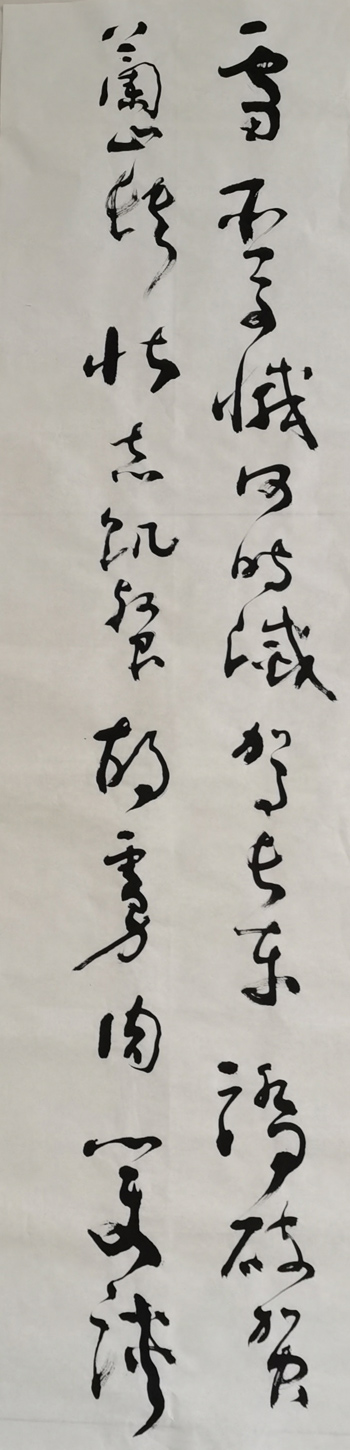 雪臣子憾何時滅駕長車踏破賀
蘭山缺壯志飢餐胡虜肉笑談